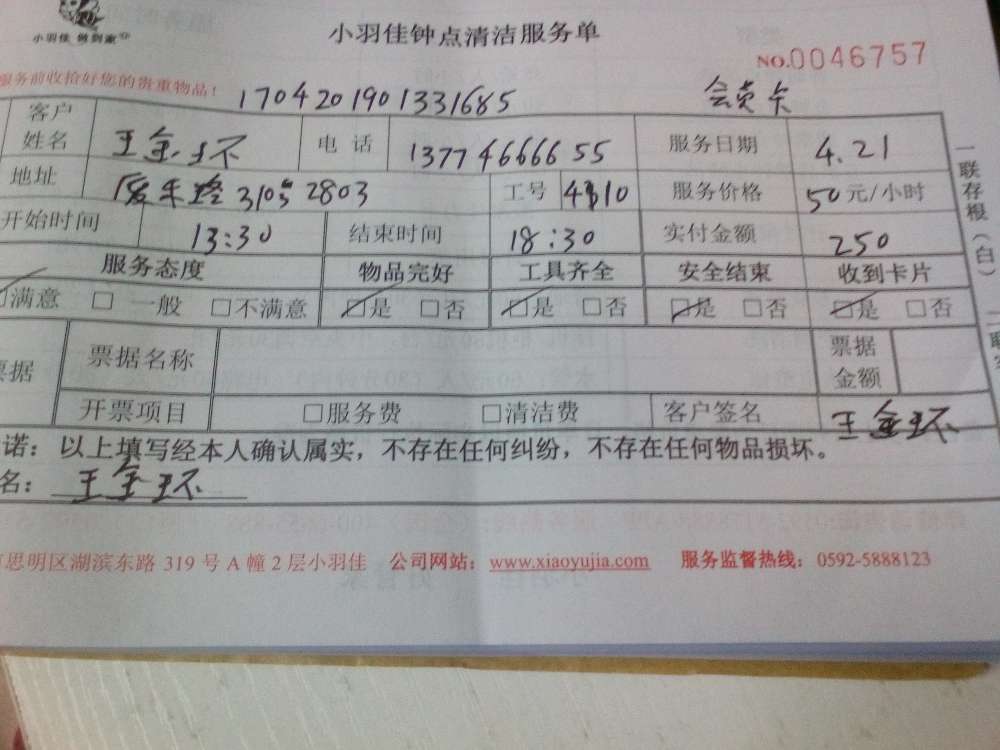 小羽佳 做到家
小羽佳钟点清洁服务单
NO.0046757
服务前收拾好您的贵重物品！
1704201901331685 会员卡
客户姓名 王金环 电话 13774666655 服务日期 4.21
地址 厦禾路310号2803 工号 4310 服务价格 50元/小时
开始时间 13:30 结束时间 18:30 实付金额 250
服务态度 物品完好 工具齐全 安全结束 收到卡片
☑满意 □一般 □不满意 ☑是 □否 ☑是 □否 ☑是 □否 ☑是 □否
票据 票据名称 票据金额
开票项目 □服务费 □清洁费 客户签名 王金环
诺：以上填写经本人确认属实，不存在任何纠纷，不存在任何物品损坏。
名：王金环
思明区湖滨东路 319 号 A 幢 2 层小羽佳 公司网站：www.xiaoyujia.com 服务监督热线：0592-5888123
一联存根（白）